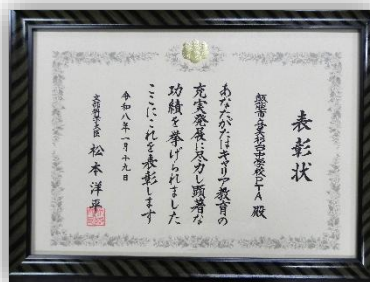 表彰状
中学校PTA 殿
あなたがたはキャリア教育の
充実発展に尽力し顕著な
功績を挙げられました
ここにこれを表彰します
令和八年一月十九日
文部科学大臣 松本洋平